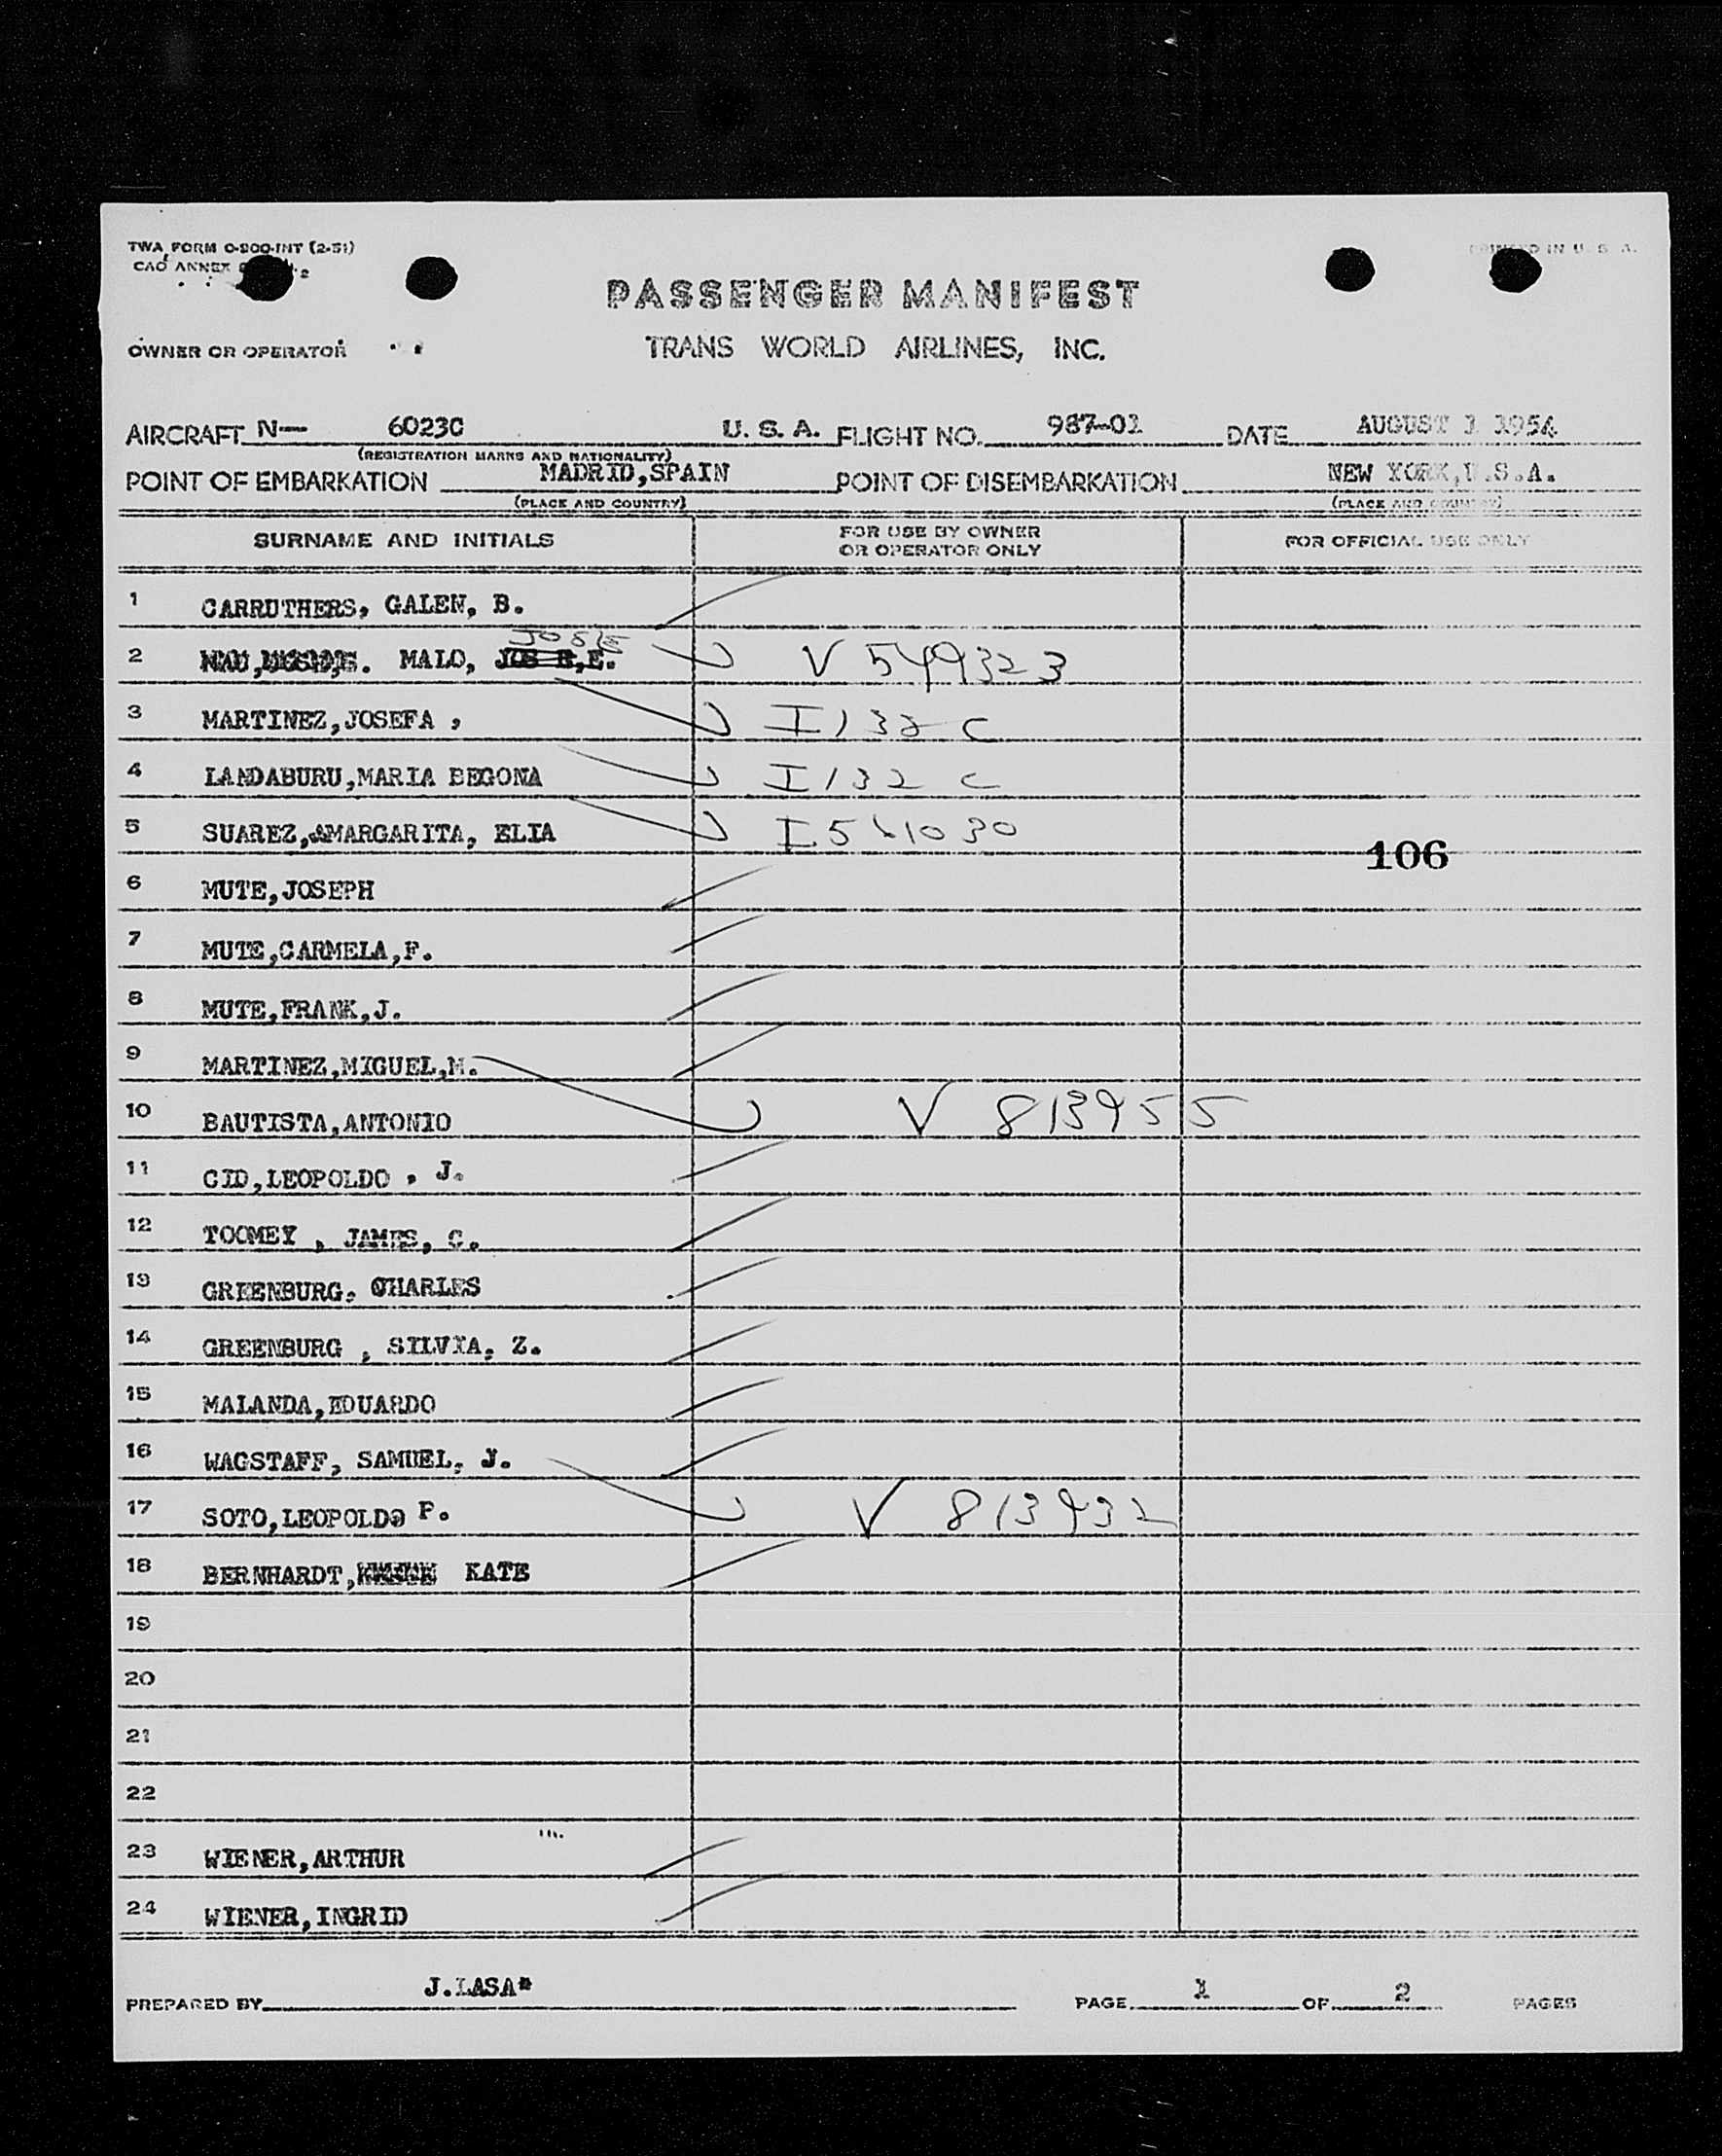 TWA FORM O-200-INT (2-51)
CAO ANNEX
PRINTED IN U. S. A.
PASSENGER MANIFEST
OWNER OR OPERATOR TRANS WORLD AIRLINES, INC.
AIRCRAFT N— 6023C U. S. A. FLIGHT NO. 987-01 DATE AUGUST 1 1954
(REGISTRATION MARKS AND NATIONALITY)
POINT OF EMBARKATION MADRID,SPAIN POINT OF DISEMBARKATION NEW YORK,U.S.A.
(PLACE AND COUNTRY) (PLACE AND COUNTRY)
SURNAME AND INITIALS FOR USE BY OWNER OR OPERATOR ONLY FOR OFFICIAL USE ONLY
1 CARRUTHERS, GALEN, B.
2 MALO, JOSE E. V 549323
3 MARTINEZ,JOSEFA , I 132 C
4 LANDABURU,MARIA BEGONA I 132 C
5 SUAREZ,MARGARITA, ELIA
106
6 MUTE,JOSEPH
7 MUTE,CARMELA,F.
8 MUTE,FRANK,J.
9 MARTINEZ,MIGUEL,M.
10 BAUTISTA,ANTONIO V 813955
11 CID,LEOPOLDO . J.
12 TOOMEY , JAMES, C.
13 GREENBURG, CHARLES
14 GREENBURG , SILVIA, Z.
15 MALANDA,EDUARDO
16 WAGSTAFF, SAMUEL, J.
17 SOTO,LEOPOLDO P. V 813932
18 BERNHARDT, KATE
19
20
21
22
23 WIENER,ARTHUR
24 WIENER,INGRID
PREPARED BY J.LASA* PAGE 1 OF 2 PAGES